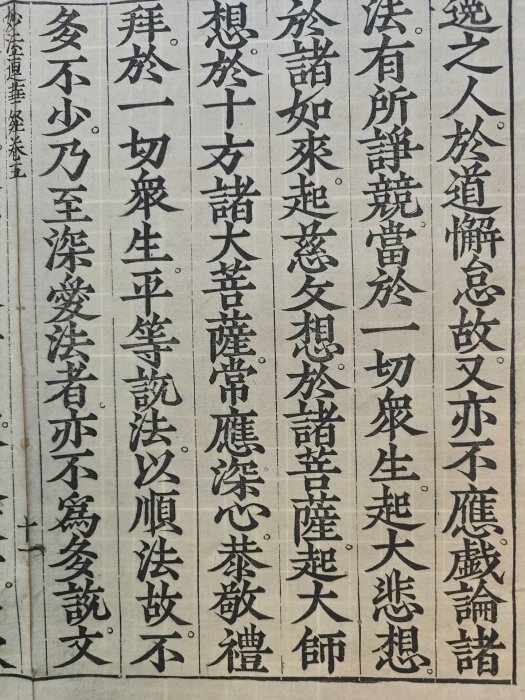 逸之人。於道懈怠故。又亦不應戲論諸
法。有所諍競。當於一切衆生。起大悲想。
於諸如來。起慈父想。於諸菩薩。起大師
想。於十方諸大菩薩。常應深心。恭敬禮
拜。於一切衆生。平等說法。以順法故。不
多不少。乃至深愛法者。亦不爲多說。文
妙法蓮華經卷五
十二